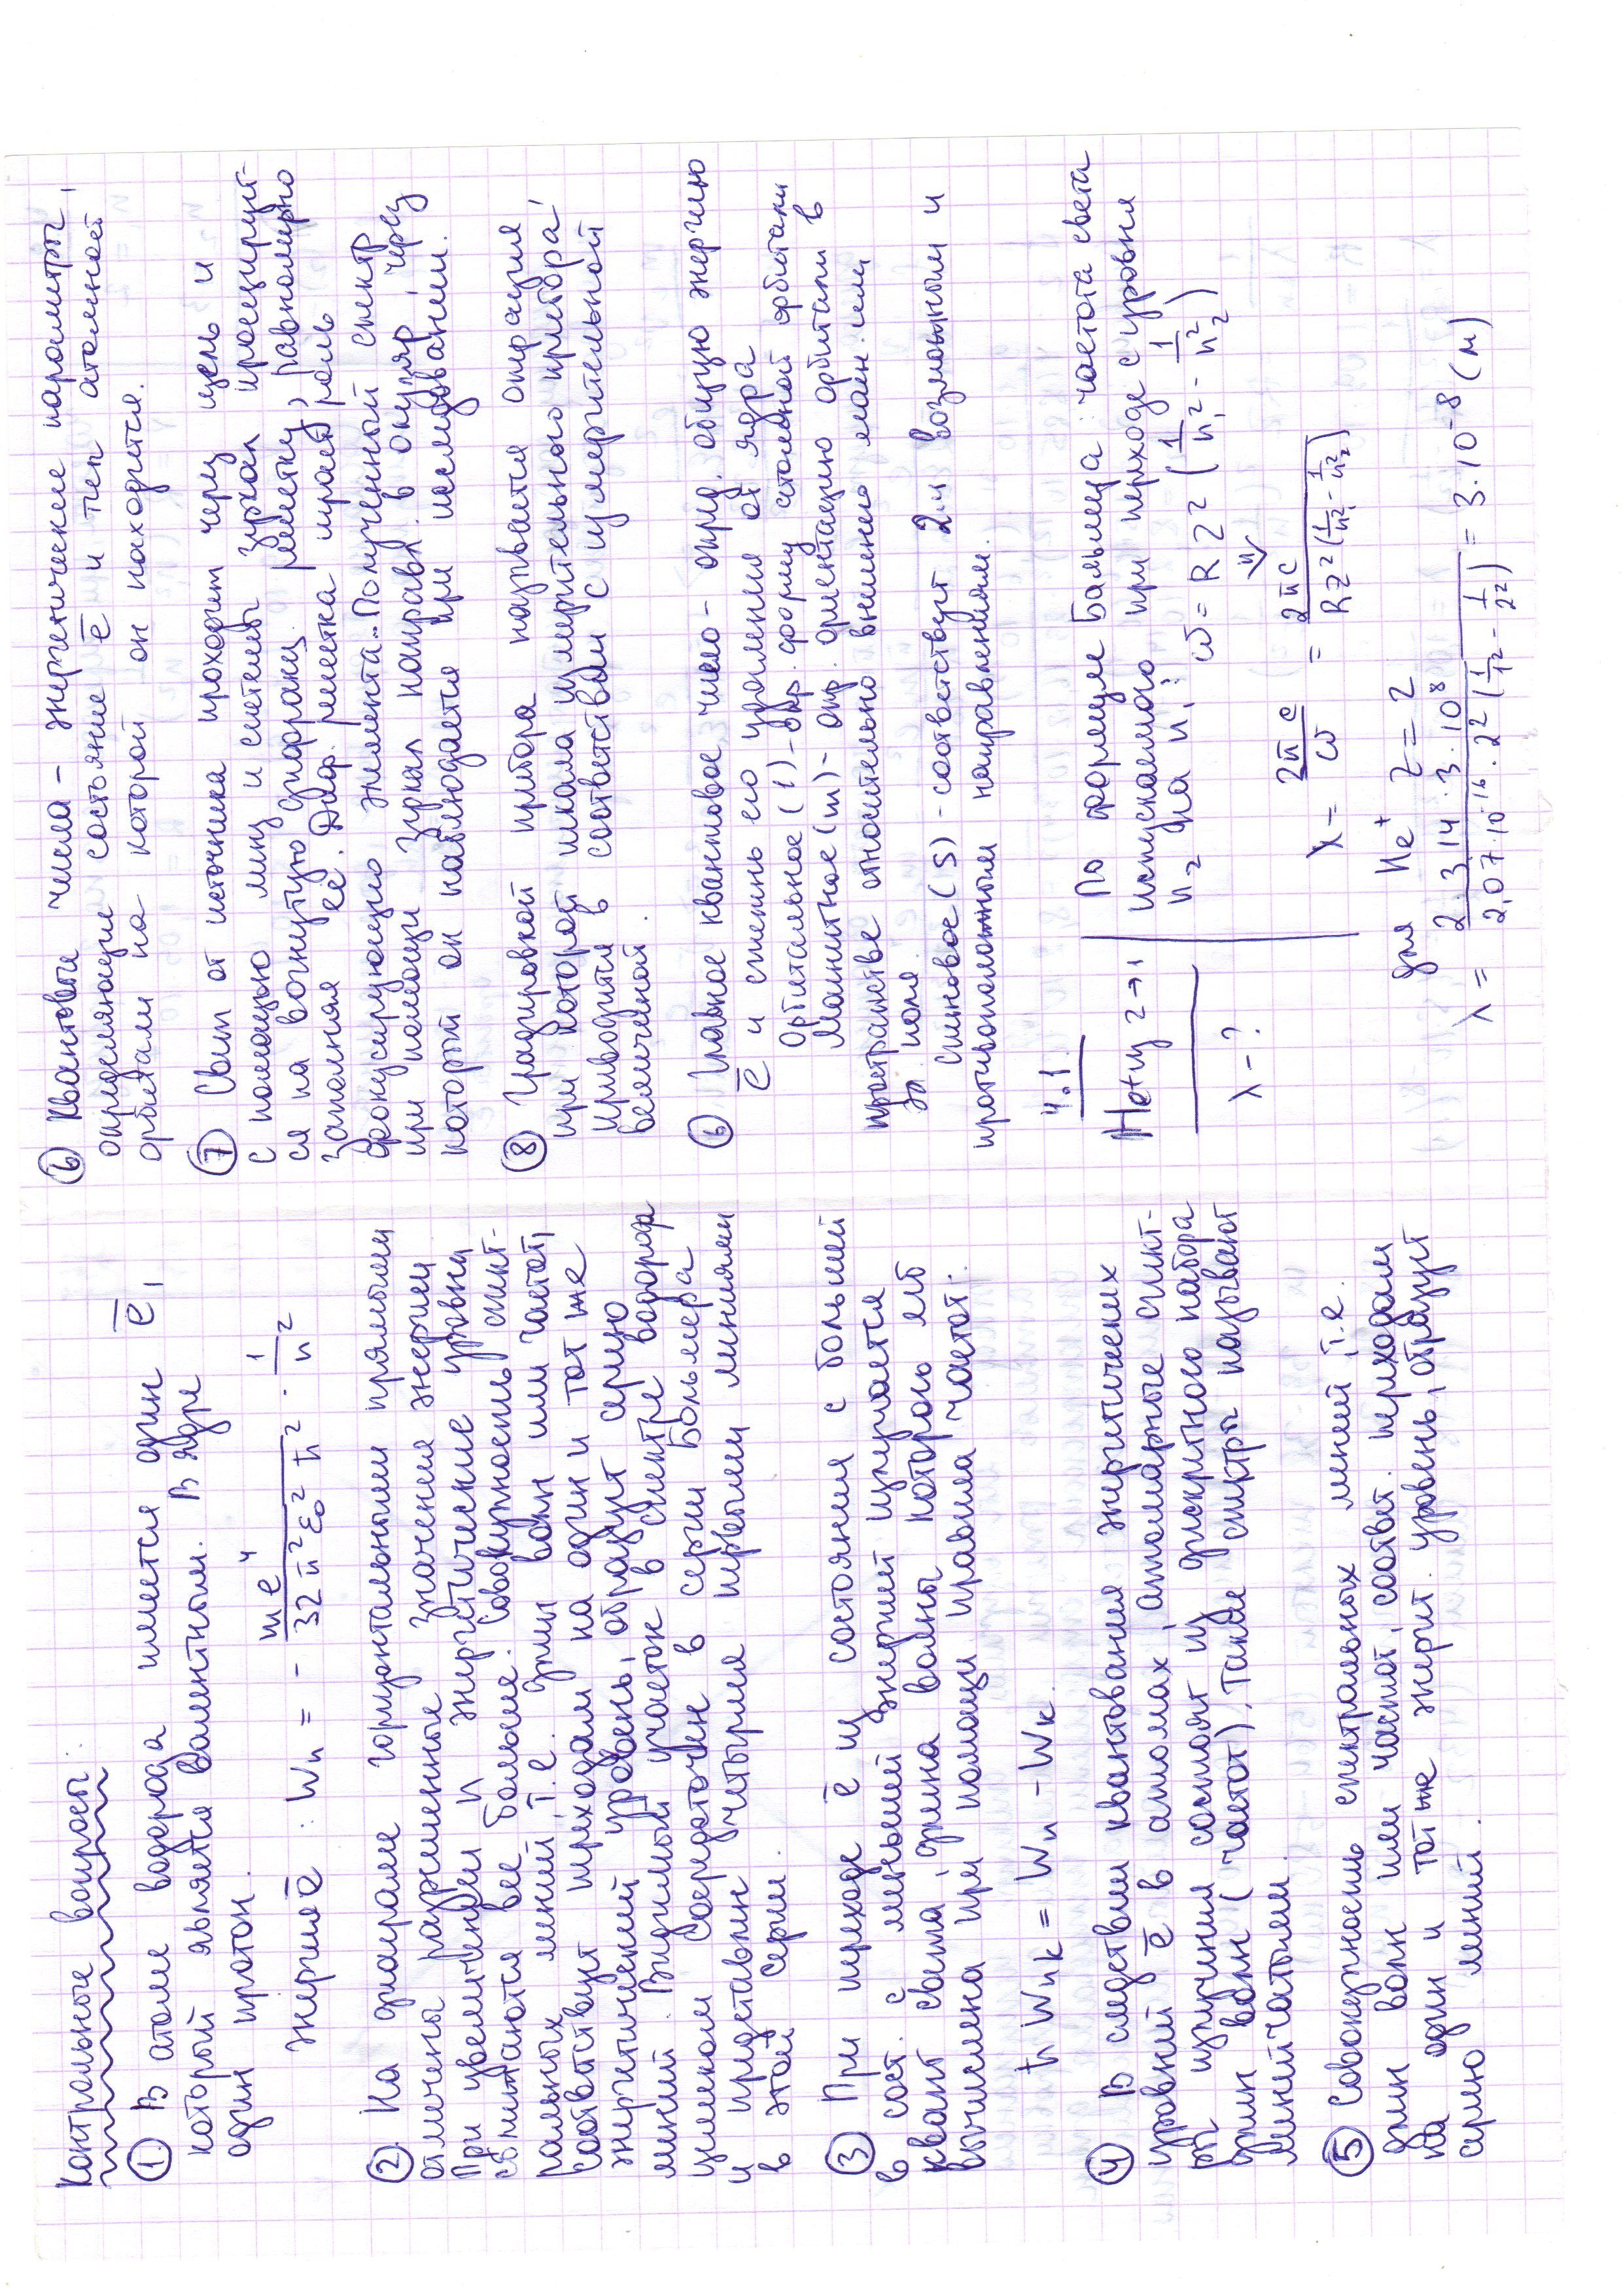 Контрольные вопросы:
① В атоме водорода имеется один e̅,
который является валентным. В ядре
один протон.
Энергия e̅ : Wn = - me⁴ / 32π²ε₀²ħ² · 1/n²
② На диаграме горизонтальными прямыми
отмечены разрешенные значения энергии
При увеличении n энергетические уровни
сближаются все больше. Совокупность спект-
ральных линий, т.е. длин волн или частот,
соответствует переходам на один и тот же
энергетический уровень, образует серию
линий. Видимый участок в спектре водорода
целиком сосредоточен в серии Бальмера
и представлен четырмя первыми линиями
в этой серии.
③ При переходе e̅ из состояния с большей
в сост. с меньшей энергией излучается
квант света, длина волны которого мб
вычислена при помощи правила частот:
ħ Wnk = Wn - Wk.
④ В следствии квантования энергетических
уровней e̅ в атомах, атомарные спект-
ры излучения состоят из дискретного набора
длин волн (частот). Такие спектры называют
линейчатыми.
⑤ Совокупность спектральных линий, т.е.
длин волн или частот, соответ. переходам
на один и тот же энергет. уровень, образует
серию линий.
⑥ Квантовые числа - энергетические параметры,
определяющие состояние e̅ и тип атомной
орбитали на которой он находится.
⑦ Свет от источника проходит через щель и
с помощью линз и системы зеркал проецирует-
ся на вогнутую дифракц. решетку, равномерно
заполняя её. Диф. решетка играет роль
фокусирующего элемента. Полученный спектр
при помощи зеркал направл. в окуляр, через
который он наблюдается при исследовании.
⑧ Градировкой прибора называется операция,
при которой шкала измерительного прибора
приводится в соответствии с измерительной
величиной.
⑥ Главное квантовое число - опред. общую энергию
e̅ и степень его удаления от ядра
Орбитальное (l) - опр. форму атомной орбитали
Магнитное (m) - опр. ориентацию орбитали в
пространстве относительно внешнего магн. или
эл. поля.
Спиновое (s) - соответствует 2-м возможным и
противоположным направлениям.
4.1.
He+ из 2→1
λ - ?
По формуле Бальмера: частота света
испускаемого при переходе с уровня
n₂ на n₁: ω = RZ² (1/n₁² - 1/n₂²)
⇓
λ = 2πc / ω = 2πc / RZ²(1/n₁² - 1/n₂²)
для He⁺ Z = 2
λ = 2·3,14·3·10⁸ / 2,07·10¹⁶·2²(1/1² - 1/2²) = 3·10⁻⁸ (м)